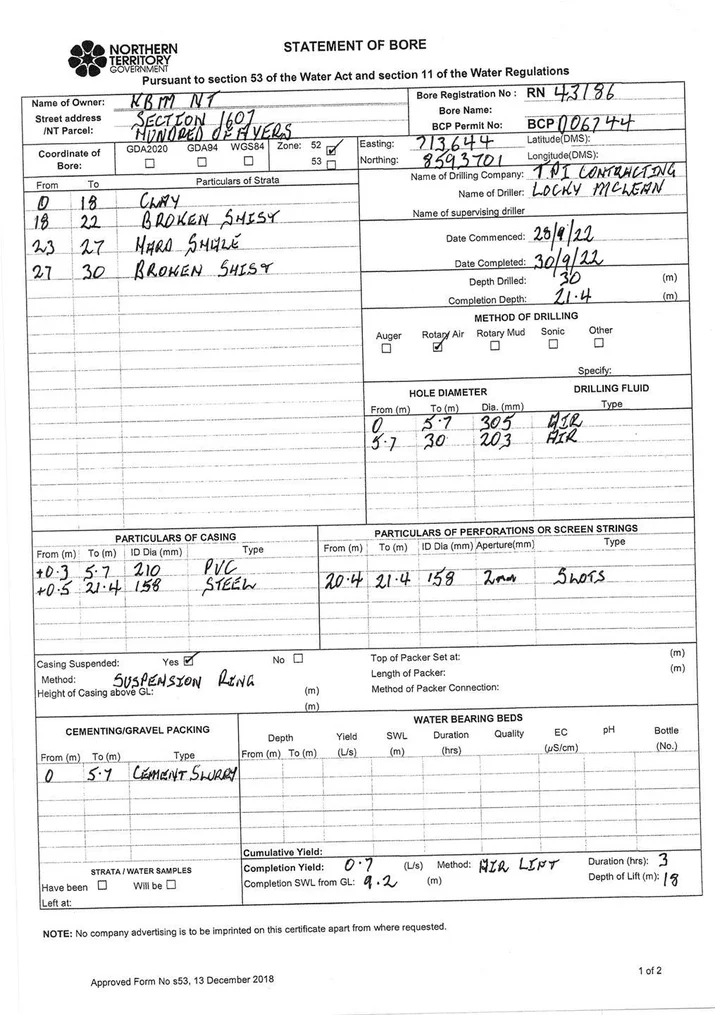 NORTHERN
TERRITORY
GOVERNMENT
STATEMENT OF BORE
Pursuant to section 53 of the Water Act and section 11 of the Water Regulations
Name of Owner: KBM NT
Bore Registration No : RN 43186
Street address SECTION 1607
Bore Name:
/NT Parcel: HUNDRED OF AYERS
BCP Permit No: BCP 006744
Coordinate of Bore: GDA2020 ☐ GDA94 ☐ WGS84 ☐ Zone: 52 ☑ 53 ☐
Easting: 713644 Latitude(DMS):
Northing: 8593701 Longitude(DMS):
From To Particulars of Strata
0 18 CLAY
18 22 BROKEN SHIST
23 27 HARD SHALE
27 30 BROKEN SHIST
Name of Drilling Company: TPI CONTRACTING
Name of Driller: LOCKY MCLEAN
Name of supervising driller
Date Commenced: 28/9/22
Date Completed: 30/9/22
Depth Drilled: 30 (m)
Completion Depth: 21.4 (m)
METHOD OF DRILLING
Auger Rotary Air Rotary Mud Sonic Other
☐ ☑ ☐ ☐ ☐
Specify:
HOLE DIAMETER DRILLING FLUID
From (m) To (m) Dia. (mm) Type
0 5.7 305 AIR
5.7 30 203 AIR
PARTICULARS OF CASING
From (m) To (m) ID Dia (mm) Type
+0.3 5.7 210 PVC
+0.5 21.4 158 STEEL
PARTICULARS OF PERFORATIONS OR SCREEN STRINGS
From (m) To (m) ID Dia (mm) Aperture(mm) Type
20.4 21.4 158 2mm SLOTS
Casing Suspended: Yes ☑ No ☐
Method: SUSPENSION RING
Height of Casing above GL: (m)
(m)
Top of Packer Set at: (m)
Length of Packer: (m)
Method of Packer Connection:
CEMENTING/GRAVEL PACKING
From (m) To (m) Type
0 5.7 CEMENT SLURRY
WATER BEARING BEDS
Depth Yield SWL Duration Quality EC pH Bottle
From (m) To (m) (L/s) (m) (hrs) (µS/cm) (No.)
Cumulative Yield:
STRATA / WATER SAMPLES
Have been ☐ Will be ☐
Left at:
Completion Yield: 0.7 (L/s) Method: AIR LIFT Duration (hrs): 3
Completion SWL from GL: 9.2 (m) Depth of Lift (m): 18
NOTE: No company advertising is to be imprinted on this certificate apart from where requested.
Approved Form No s53, 13 December 2018
1 of 2